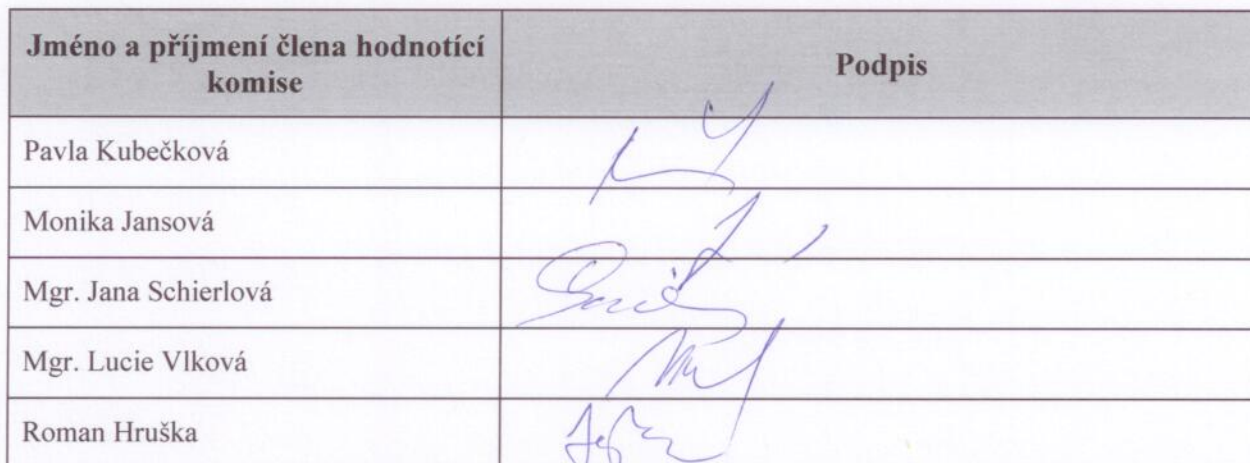 Jméno a příjmení člena hodnotící
komise
Podpis
Pavla Kubečková
Monika Jansová
Mgr. Jana Schierlová
Mgr. Lucie Vlková
Roman Hruška